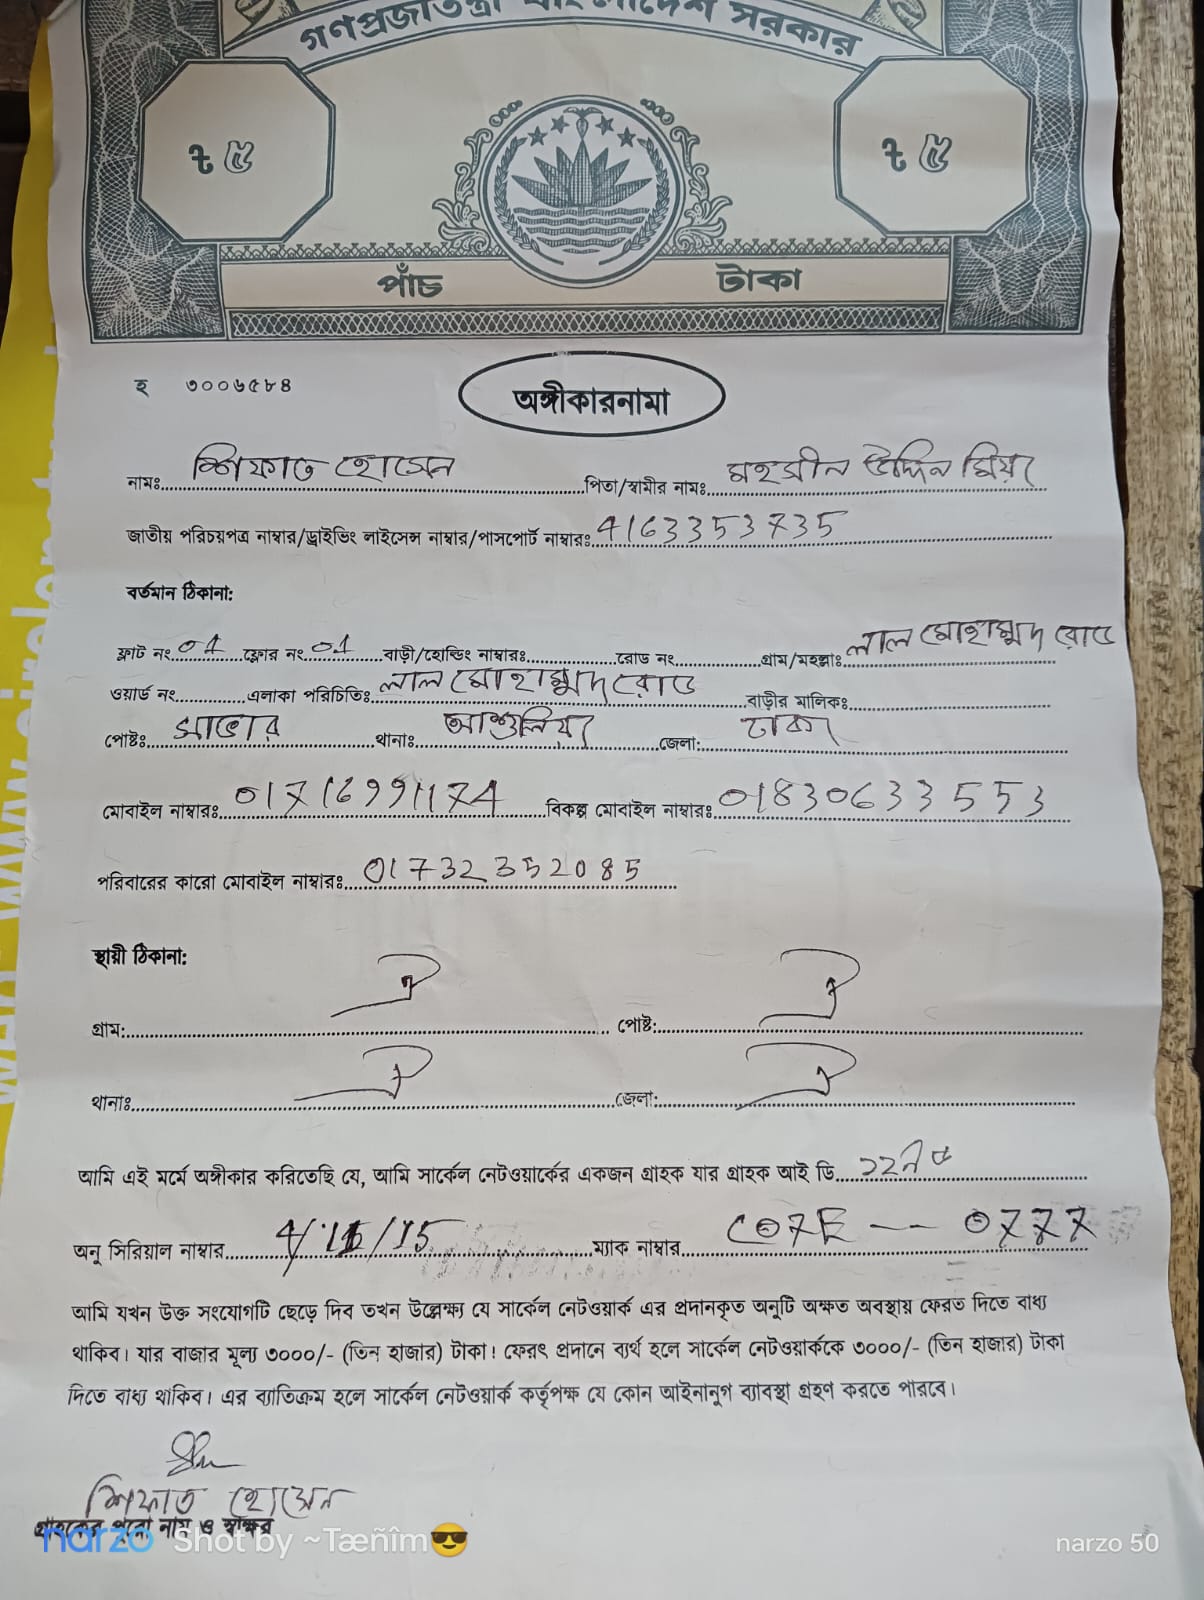 গণপ্রজাতন্ত্রী বাংলাদেশ সরকার
৳ ৫ ৳ ৫
পাঁচ টাকা
হ ৩০০৬৫৮৪
অঙ্গীকারনামা
নামঃ শিফাত হোসেন পিতা/স্বামীর নামঃ মহসীন উদ্দিন মিয়া
জাতীয় পরিচয়পত্র নাম্বার/ড্রাইভিং লাইসেন্স নাম্বার/পাসপোর্ট নাম্বারঃ 4163353735
বর্তমান ঠিকানা:
ফ্লাট নং 01 ফ্লোর নং 01 বাড়ী/হোল্ডিং নাম্বারঃ রোড নং গ্রাম/মহল্লাঃ লাল মোহাম্মদ রোড
ওয়ার্ড নং এলাকা পরিচিতিঃ লাল মোহাম্মদ রোড বাড়ীর মালিকঃ
পোষ্টঃ সাভার থানাঃ আশুলিয়া জেলা: ঢাকা
মোবাইল নাম্বারঃ 01716991174 বিকল্প মোবাইল নাম্বারঃ 01830633553
পরিবারের কারো মোবাইল নাম্বারঃ 01732352085
স্থায়ী ঠিকানা:
গ্রাম: ঐ পোষ্ট: ঐ
থানাঃ ঐ জেলা: ঐ
আমি এই মর্মে অঙ্গীকার করিতেছি যে, আমি সার্কেল নেটওয়ার্কের একজন গ্রাহক যার গ্রাহক আই ডি
অনু সিরিয়াল নাম্বার ম্যাক নাম্বার C07E — 0777
আমি যখন উক্ত সংযোগটি ছেড়ে দিব তখন উল্লেক্ষ্য যে সার্কেল নেটওয়ার্ক এর প্রদানকৃত অনুটি অক্ষত অবস্থায় ফেরত দিতে বাধ্য
থাকিব। যার বাজার মূল্য ৩০০০/- (তিন হাজার) টাকা। ফেরৎ প্রদানে ব্যর্থ হলে সার্কেল নেটওয়ার্ককে ৩০০০/- (তিন হাজার) টাকা
দিতে বাধ্য থাকিব। এর ব্যাতিক্রম হলে সার্কেল নেটওয়ার্ক কর্তৃপক্ষ যে কোন আইনানুগ ব্যাবস্থা গ্রহণ করতে পারবে।
শিফাত হোসেন
গ্রাহকের পুরো নাম ও স্বাক্ষর
narzo Shot by ~Tæñîm😎 narzo 50